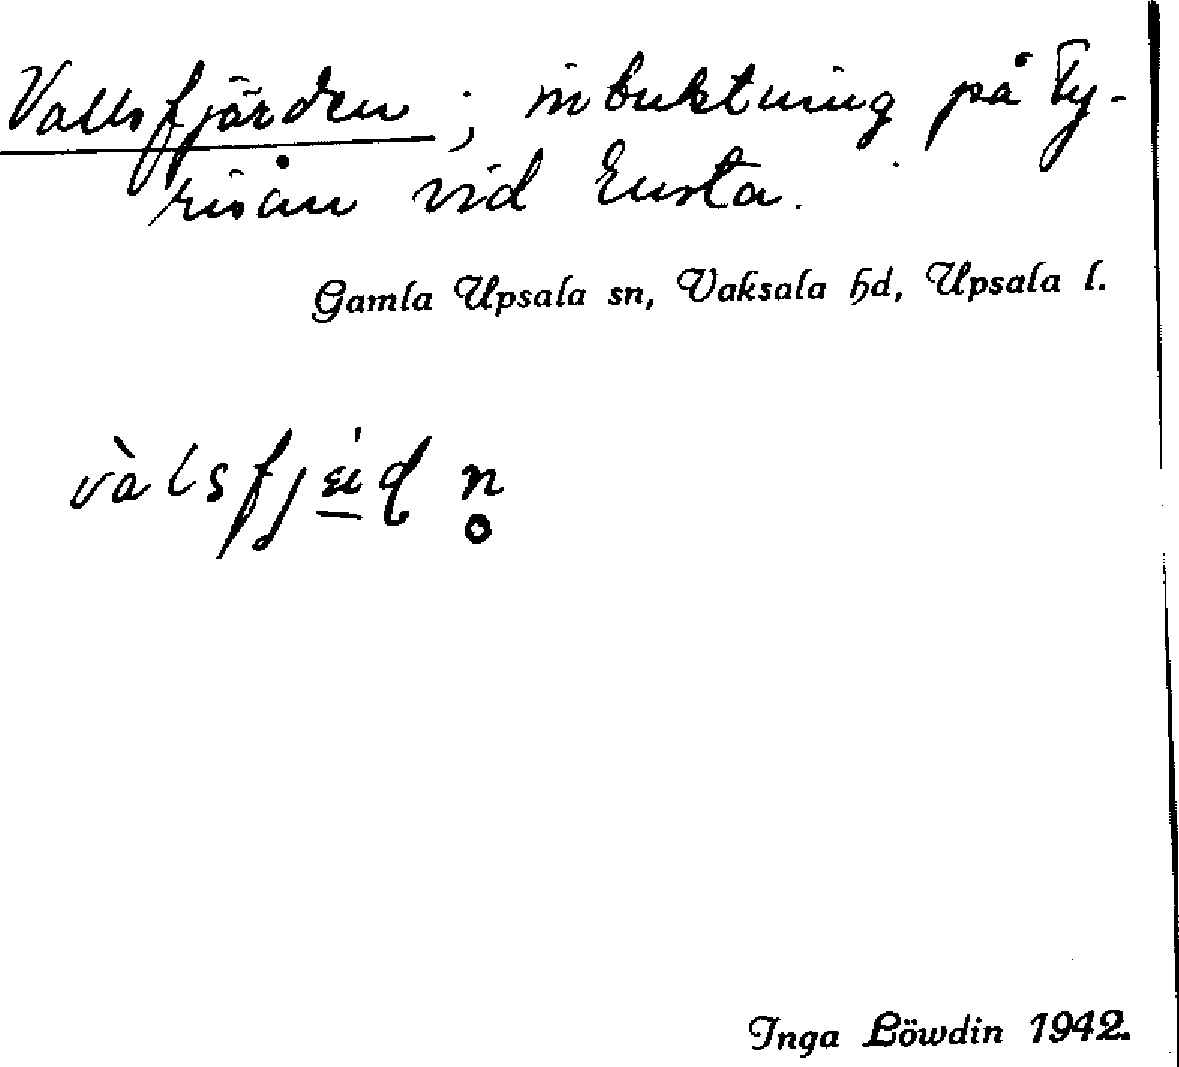 Vallsfjärden; inbuktning på Fy-
risån vid Ensta.
Gamla Upsala sn, Vaksala hd, Upsala l.
Inga Löwdin 1942.